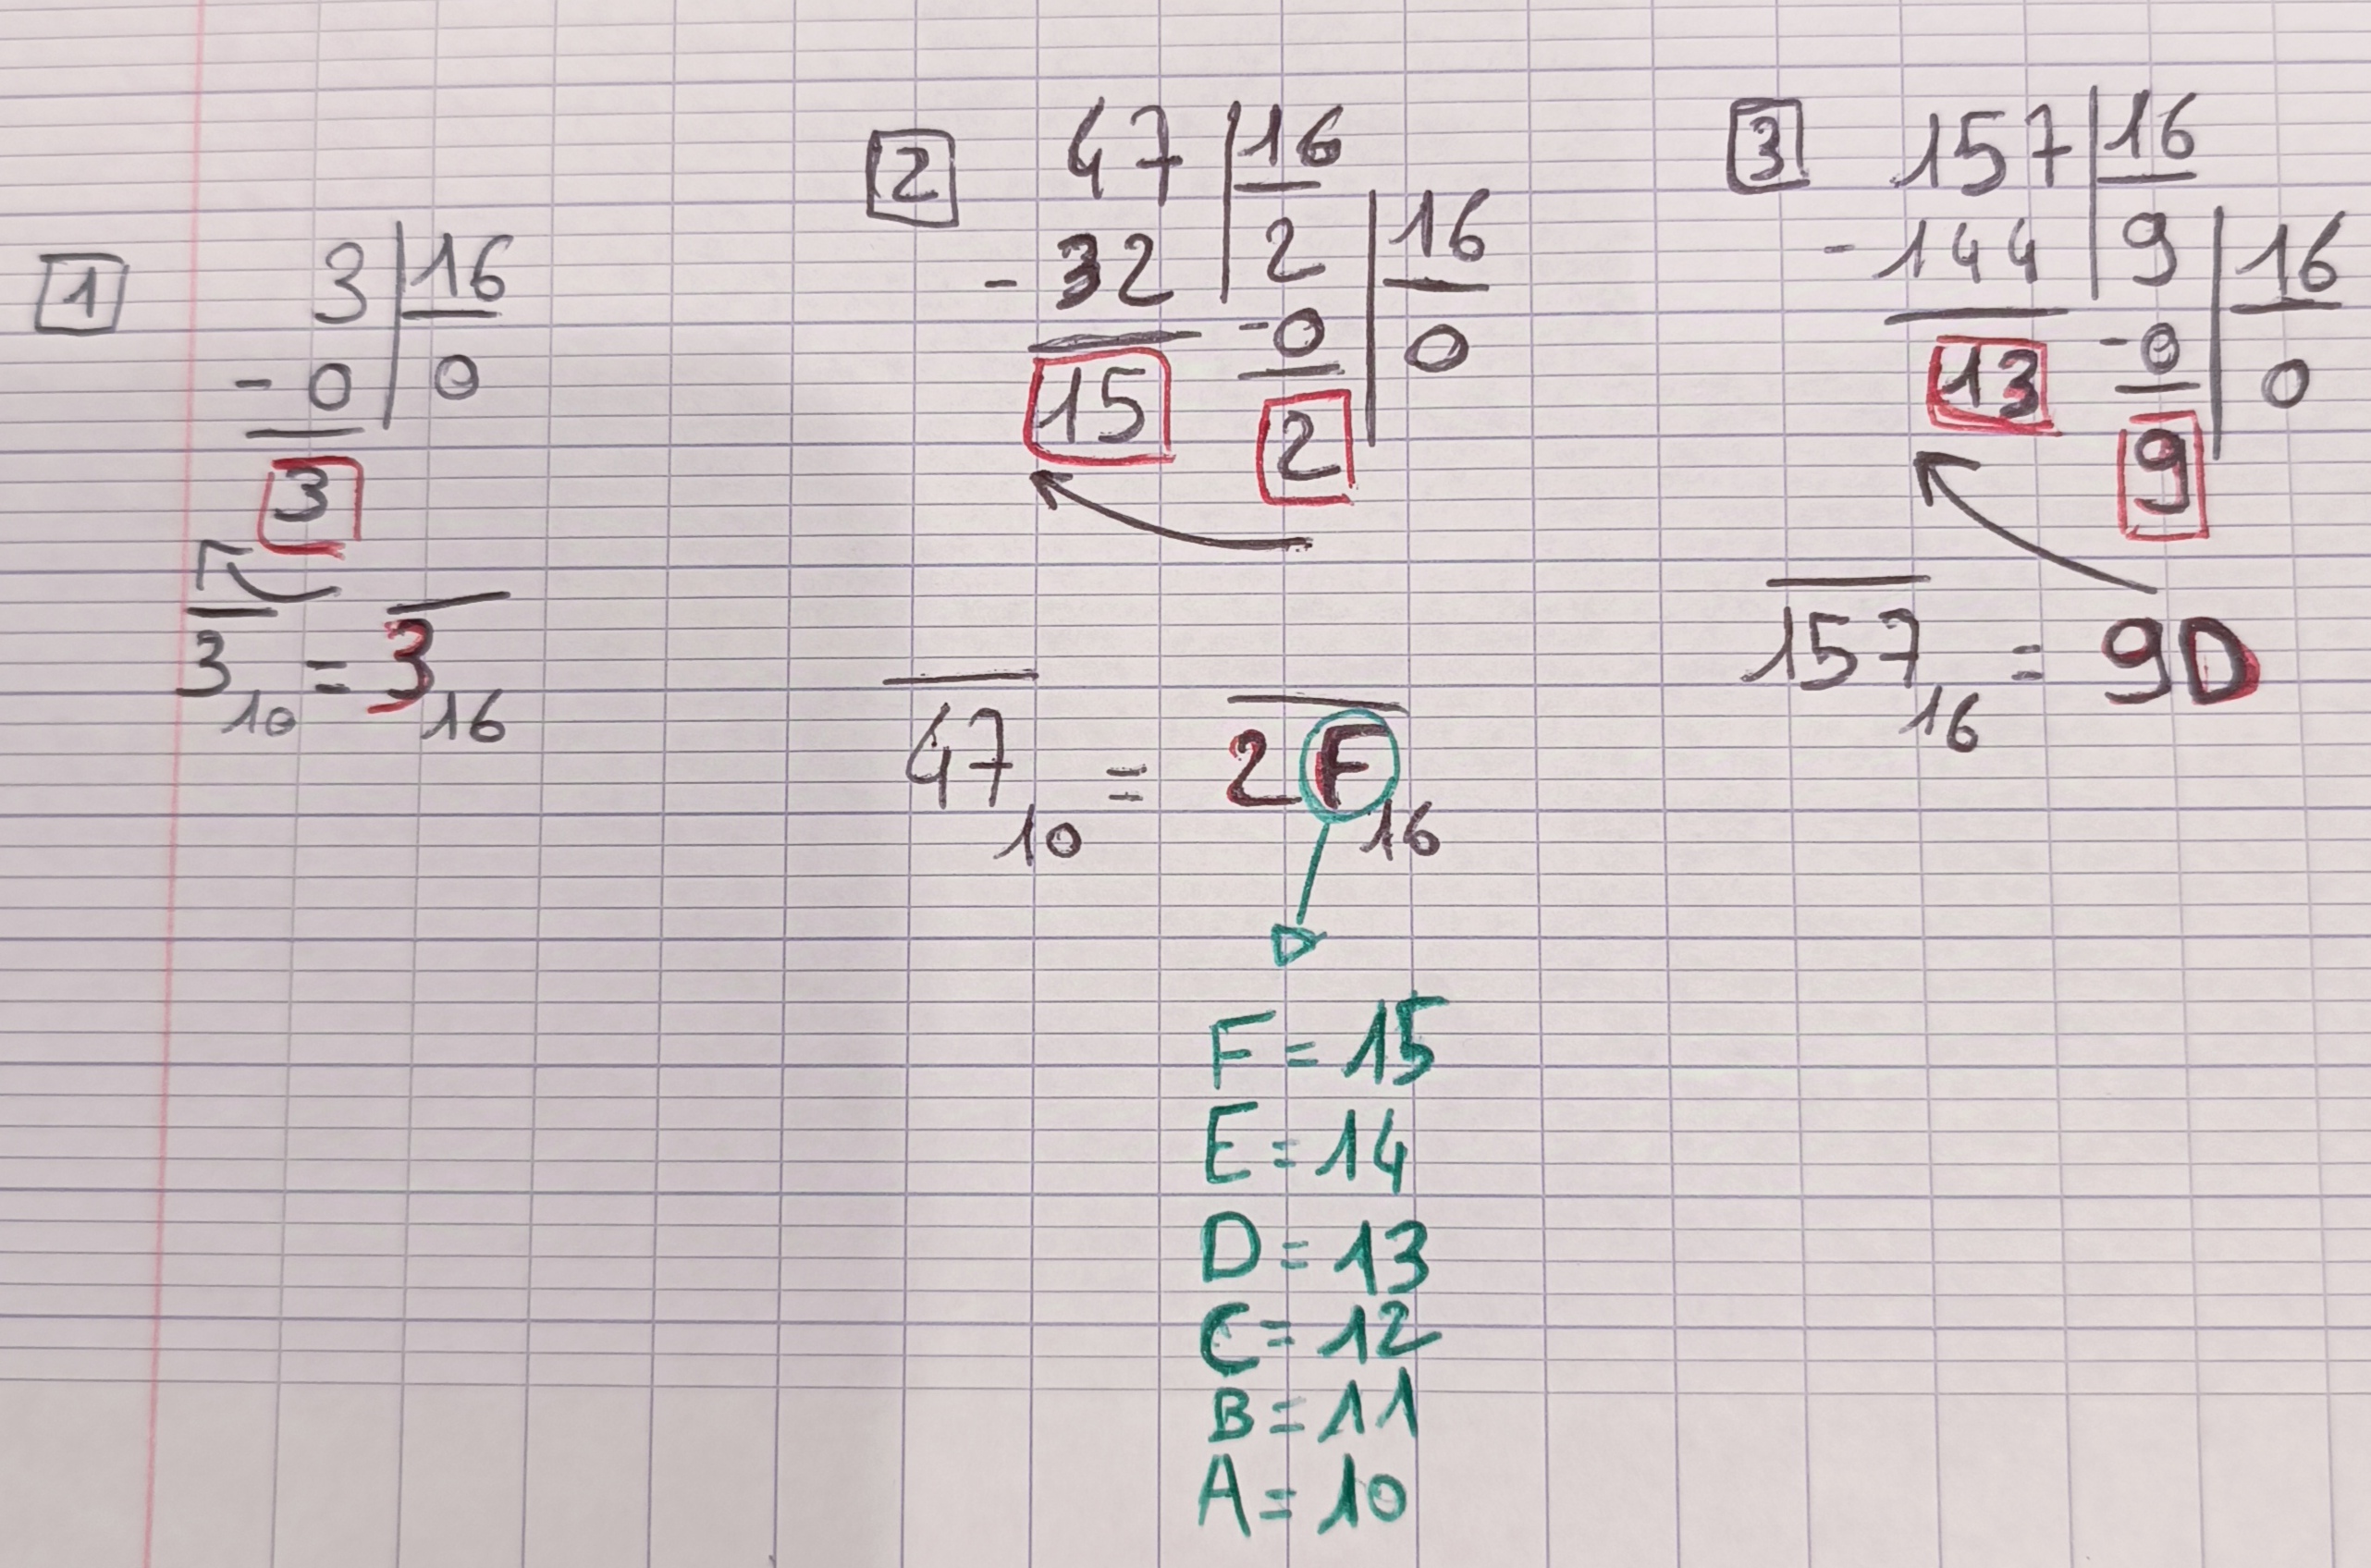 1
3 | 16
- 0 | 0
3
3 10 = 3 16
2
47 | 16
- 32 | 2 | 16
15 - 0 | 0
2
47 10 = 2F 16
F = 15
E = 14
D = 13
C = 12
B = 11
A = 10
3
157 | 16
- 144 | 9 | 16
13 - 0 | 0
9
157 16 = 9D